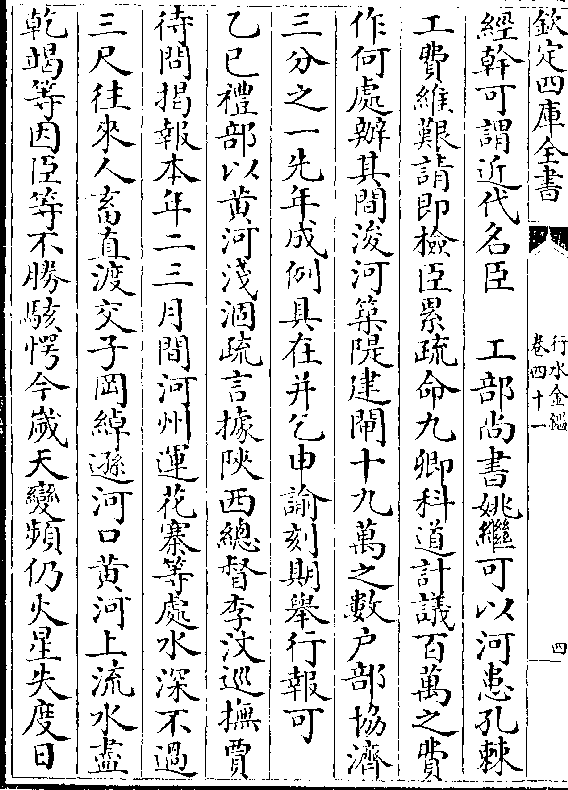 欽定四庫全書
行水金鑑
卷四十一
四
經幹可謂近代名臣　工部尚書姚繼可以河患孔棘
工費維艱請即檢臣累疏命九卿科道計議百萬之費
作何處辦其間浚河築隄建閘十九萬之數户部協濟
三分之一先年成例具在并乞由諭刻期舉行報可
乙巳禮部以黄河淺涸疏言據陜西總督李汶巡撫賈
待問揭報本年二三月間河州蓮花寨等處水深不過
三尺往來人畜直渡交子岡綽遜河口黄河上流水盡
乾竭等因臣等不勝駭愕今歲天變頻仍火星失度日